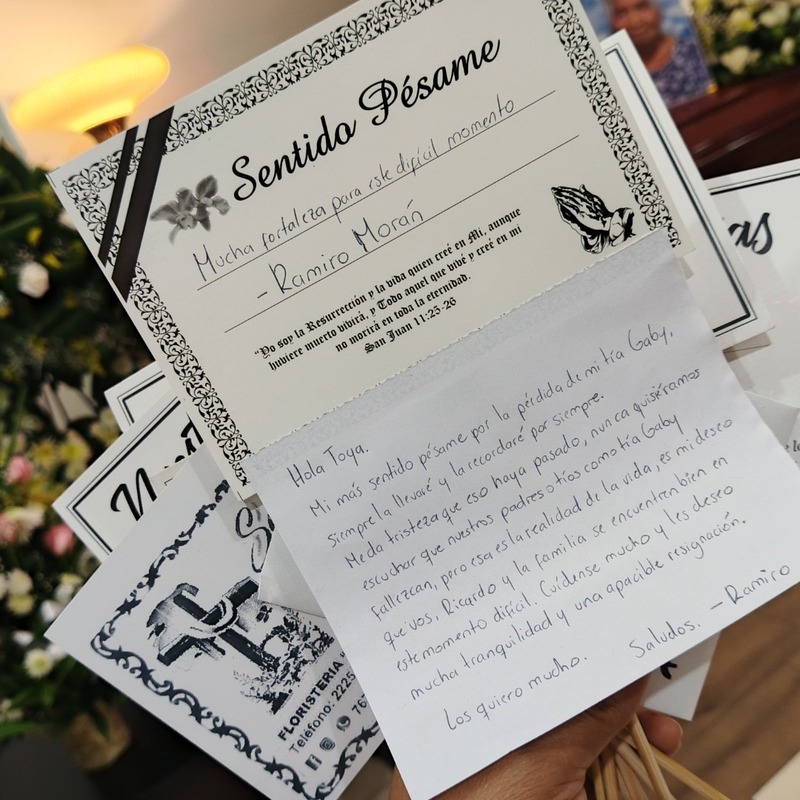 Sentido Pésame
Mucha fortaleza para este difícil momento
- Ramiro Morán
"Yo soy la Resurrección y la vida quien creé en Mi, aunque
hubiere muerto vivirá, y Todo aquel que vivé y creé en mi
no morirá en toda la eternidad.
San Juan 11:25-26
Hola Toya.
Mi más sentido pésame por la pérdida de mi tía Gaby,
siempre la llevaré y la recordaré por siempre.
Me da tristeza que eso haya pasado, nunca quisiéramos
escuchar que nuestros padres o tíos como tía Gaby
fallezcan, pero esa es la realidad de la vida, es mi deseo
que vos, Ricardo y la familia se encuentren bien en
este momento difícil. Cuídense mucho y les deseo
mucha tranquilidad y una apacible resignación.
Los quiero mucho. Saludos. - Ramiro
FLORISTERIA
Teléfono: 2225
76
as